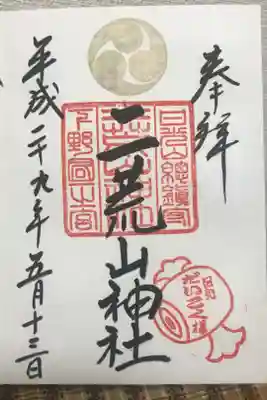 奉拝
日光山總鎮守
二荒山神社
下野國一之宮
日光
だいこく様
平成二十九年五月十三日